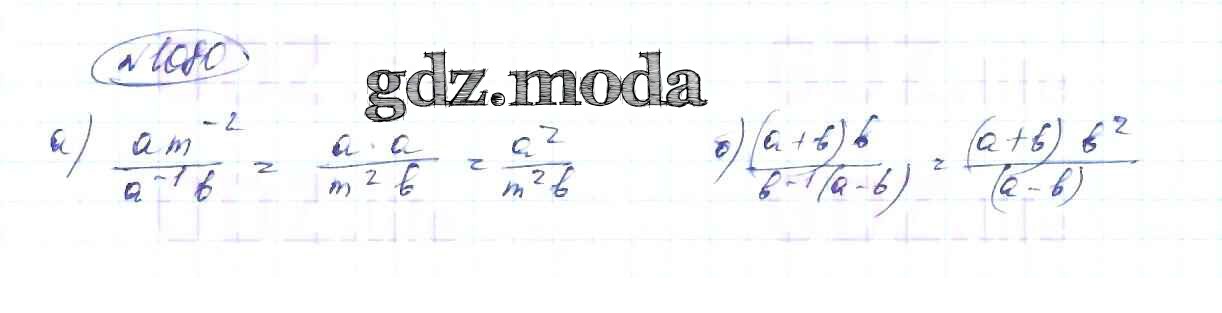 №1080
gdz.moda
а) am⁻²/a⁻¹b = a·a/m²b = a²/m²b б) (a+b)b/b⁻¹(a-b) = (a+b)b²/(a-b)